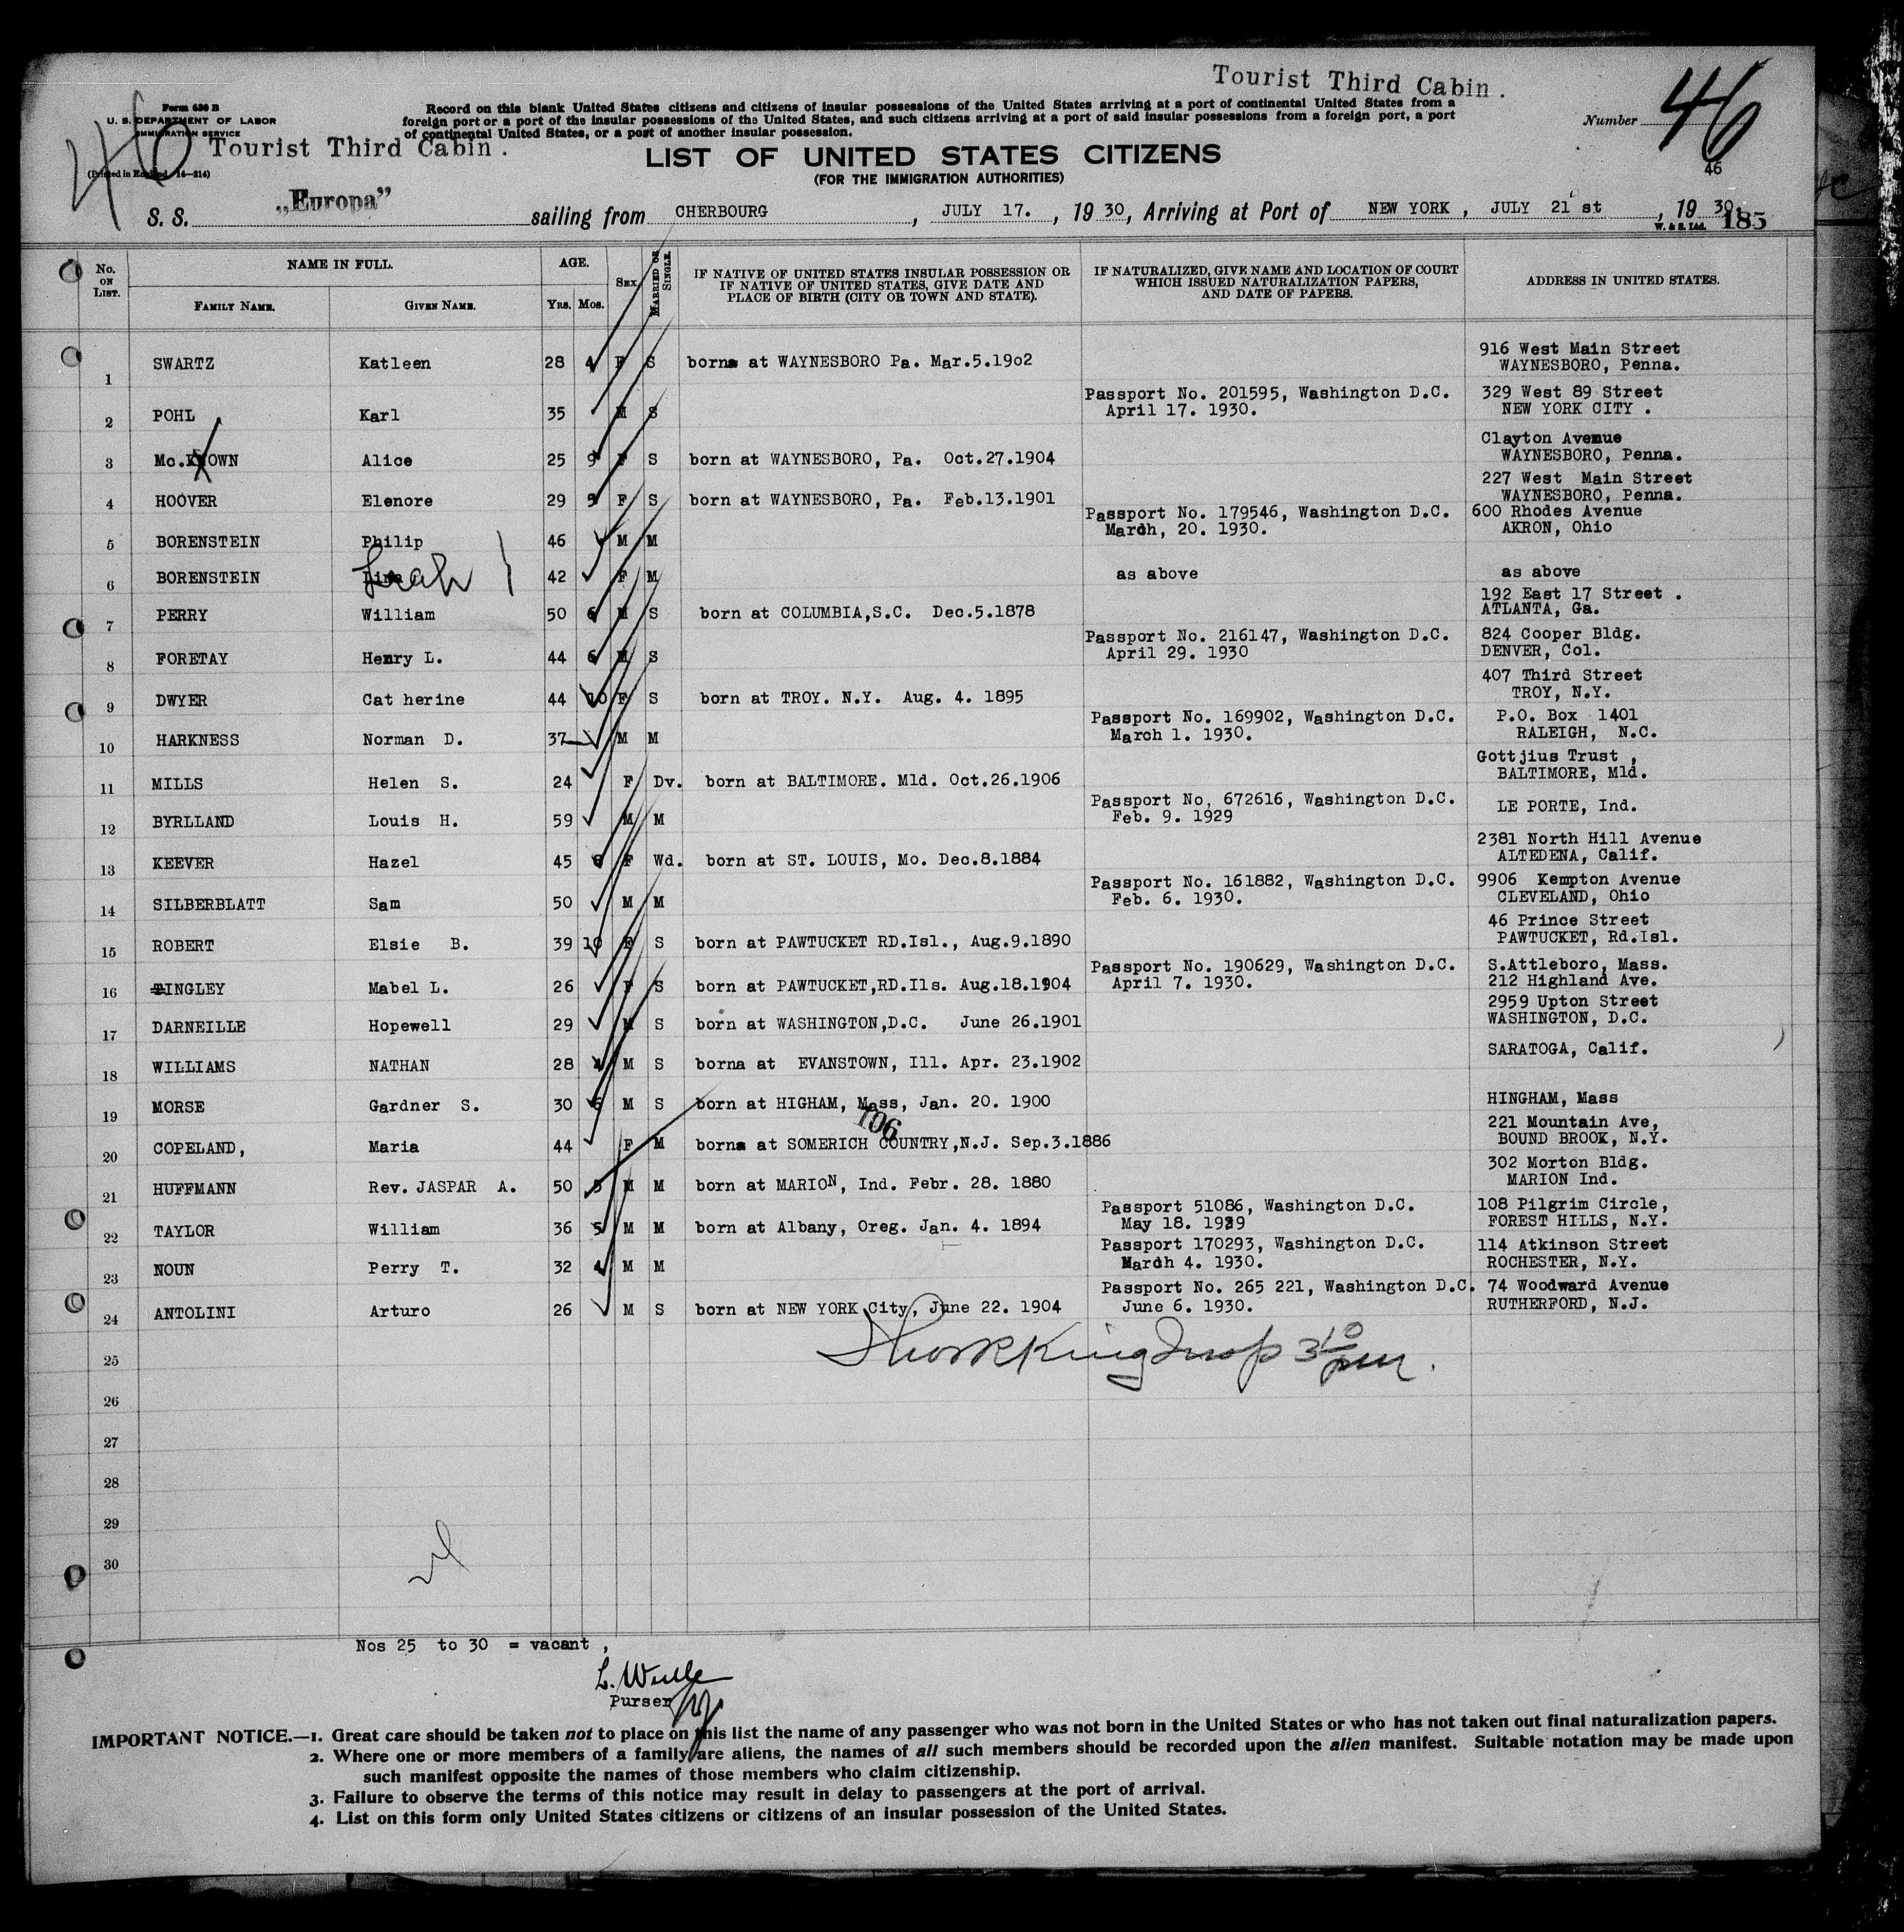 Tourist Third Cabin .
Form 630 B
U. S. DEPARTMENT OF LABOR
IMMIGRATION SERVICE
Tourist Third Cabin .
(Printed in England 14—214)
46
Record on this blank United States citizens and citizens of insular possessions of the United States arriving at a port of continental United States from a
foreign port or a port of the insular possessions of the United States, and such citizens arriving at a port of said insular possessions from a foreign port, a port
of continental United States, or a port of another insular possession.
Number 46
46
LIST OF UNITED STATES CITIZENS
(FOR THE IMMIGRATION AUTHORITIES)
S. S. „Europa” sailing from CHERBOURG , JULY 17. , 19 30, Arriving at Port of NEW YORK , JULY 21 st , 19 30.
W. & S. Ltd. 185
No. ON LIST. NAME IN FULL. FAMILY NAME. GIVEN NAME. AGE. YRS. MOS. SEX. MARRIED OR SINGLE. IF NATIVE OF UNITED STATES INSULAR POSSESSION OR IF NATIVE OF UNITED STATES, GIVE DATE AND PLACE OF BIRTH (CITY OR TOWN AND STATE). IF NATURALIZED, GIVE NAME AND LOCATION OF COURT WHICH ISSUED NATURALIZATION PAPERS, AND DATE OF PAPERS. ADDRESS IN UNITED STATES.
1 SWARTZ Katleen 28 4 F S borns at WAYNESBORO Pa. Mar.5.19o2 916 West Main Street WAYNESBORO, Penna.
2 POHL Karl 35 M S Passport No. 201595, Washington D.C. April 17. 1930. 329 West 89 Street NEW YORK CITY .
3 Mc.KNOWN Alice 25 9 F S born at WAYNESBORO, Pa. Oct.27.1904 Clayton Avenue WAYNESBORO, Penna.
4 HOOVER Elenore 29 5 F S born at WAYNESBORO, Pa. Feb.13.1901 227 West Main Street WAYNESBORO, Penna.
5 BORENSTEIN Philip 46 M M Passport No. 179546, Washington D.C. March, 20. 1930. 600 Rhodes Avenue AKRON, Ohio
6 BORENSTEIN Leah 42 F M as above as above
7 PERRY William 50 6 M S born at COLUMBIA,S.C. Dec.5.1878 192 East 17 Street . ATLANTA, Ga.
8 FORETAY Henry L. 44 6 M S Passport No. 216147, Washington D.C. April 29. 1930 824 Cooper Bldg. DENVER, Col.
9 DWYER Cat herine 44 10 F S born at TROY. N.Y. Aug. 4. 1895 407 Third Street TROY, N.Y.
10 HARKNESS Norman D. 37 M M Passport No. 169902, Washington D.C. March 1. 1930. P.O. Box 1401 RALEIGH, N.C.
11 MILLS Helen S. 24 F Dv. born at BALTIMORE. Mld. Oct.26.1906 Gottjius Trust , BALTIMORE, Mld.
12 BYRLLAND Louis H. 59 M M Passport No, 672616, Washington D.C. Feb. 9. 1929 LE PORTE, Ind.
13 KEEVER Hazel 45 8 F Wd. born at ST. LOUIS, Mo. Dec.8.1884 2381 North Hill Avenue ALTEDENA, Calif.
14 SILBERBLATT Sam 50 M M Passport No. 161882, Washington D.C. Feb. 6. 1930. 9906 Kempton Avenue CLEVELAND, Ohio
15 ROBERT Elsie B. 39 10 F S born at PAWTUCKET RD.Isl., Aug.9.1890 46 Prince Street PAWTUCKET, Rd.Isl.
16 TINGLEY Mabel L. 26 F S born at PAWTUCKET,RD.Ils. Aug.18.1904 Passport No. 190629, Washington D.C. April 7. 1930. S.Attleboro, Mass. 212 Highland Ave.
17 DARNEILLE Hopewell 29 M S born at WASHINGTON,D.C. June 26.1901 2959 Upton Street WASHINGTON, D.C.
18 WILLIAMS NATHAN 28 4 M S borna at EVANSTOWN, Ill. Apr. 23.1902 SARATOGA, Calif.
19 MORSE Gardner S. 30 6 M S born at HIGHAM, Mass, Jan. 20. 1900 HINGHAM, Mass
106
20 COPELAND, Maria 44 F M borns at SOMERICH COUNTRY,N.J. Sep.3.1886 221 Mountain Ave, BOUND BROOK, N.Y.
21 HUFFMANN Rev. JASPAR A. 50 5 M M born at MARION, Ind. Febr. 28. 1880 302 Morton Bldg. MARION Ind.
22 TAYLOR William 36 5 M M born at Albany, Oreg. Jan. 4. 1894 Passport 51086, Washington D.C. May 18. 1929 108 Pilgrim Circle, FOREST HILLS, N.Y.
23 NOUN Perry T. 32 4 M M Passport 170293, Washington D.C. March 4. 1930. 114 Atkinson Street ROCHESTER, N.Y.
24 ANTOLINI Arturo 26 M S born at NEW YORK City, June 22. 1904 Passport No. 265 221, Washington D.C. June 6. 1930. 74 Woodward Avenue RUTHERFORD, N.J.
25 King Insp 3 10 pm.
26
27
28
29
30
Nos 25 to 30 = vacant ,
Purser
IMPORTANT NOTICE.—1. Great care should be taken not to place on this list the name of any passenger who was not born in the United States or who has not taken out final naturalization papers.
2. Where one or more members of a family are aliens, the names of all such members should be recorded upon the alien manifest. Suitable notation may be made upon
such manifest opposite the names of those members who claim citizenship.
3. Failure to observe the terms of this notice may result in delay to passengers at the port of arrival.
4. List on this form only United States citizens or citizens of an insular possession of the United States.